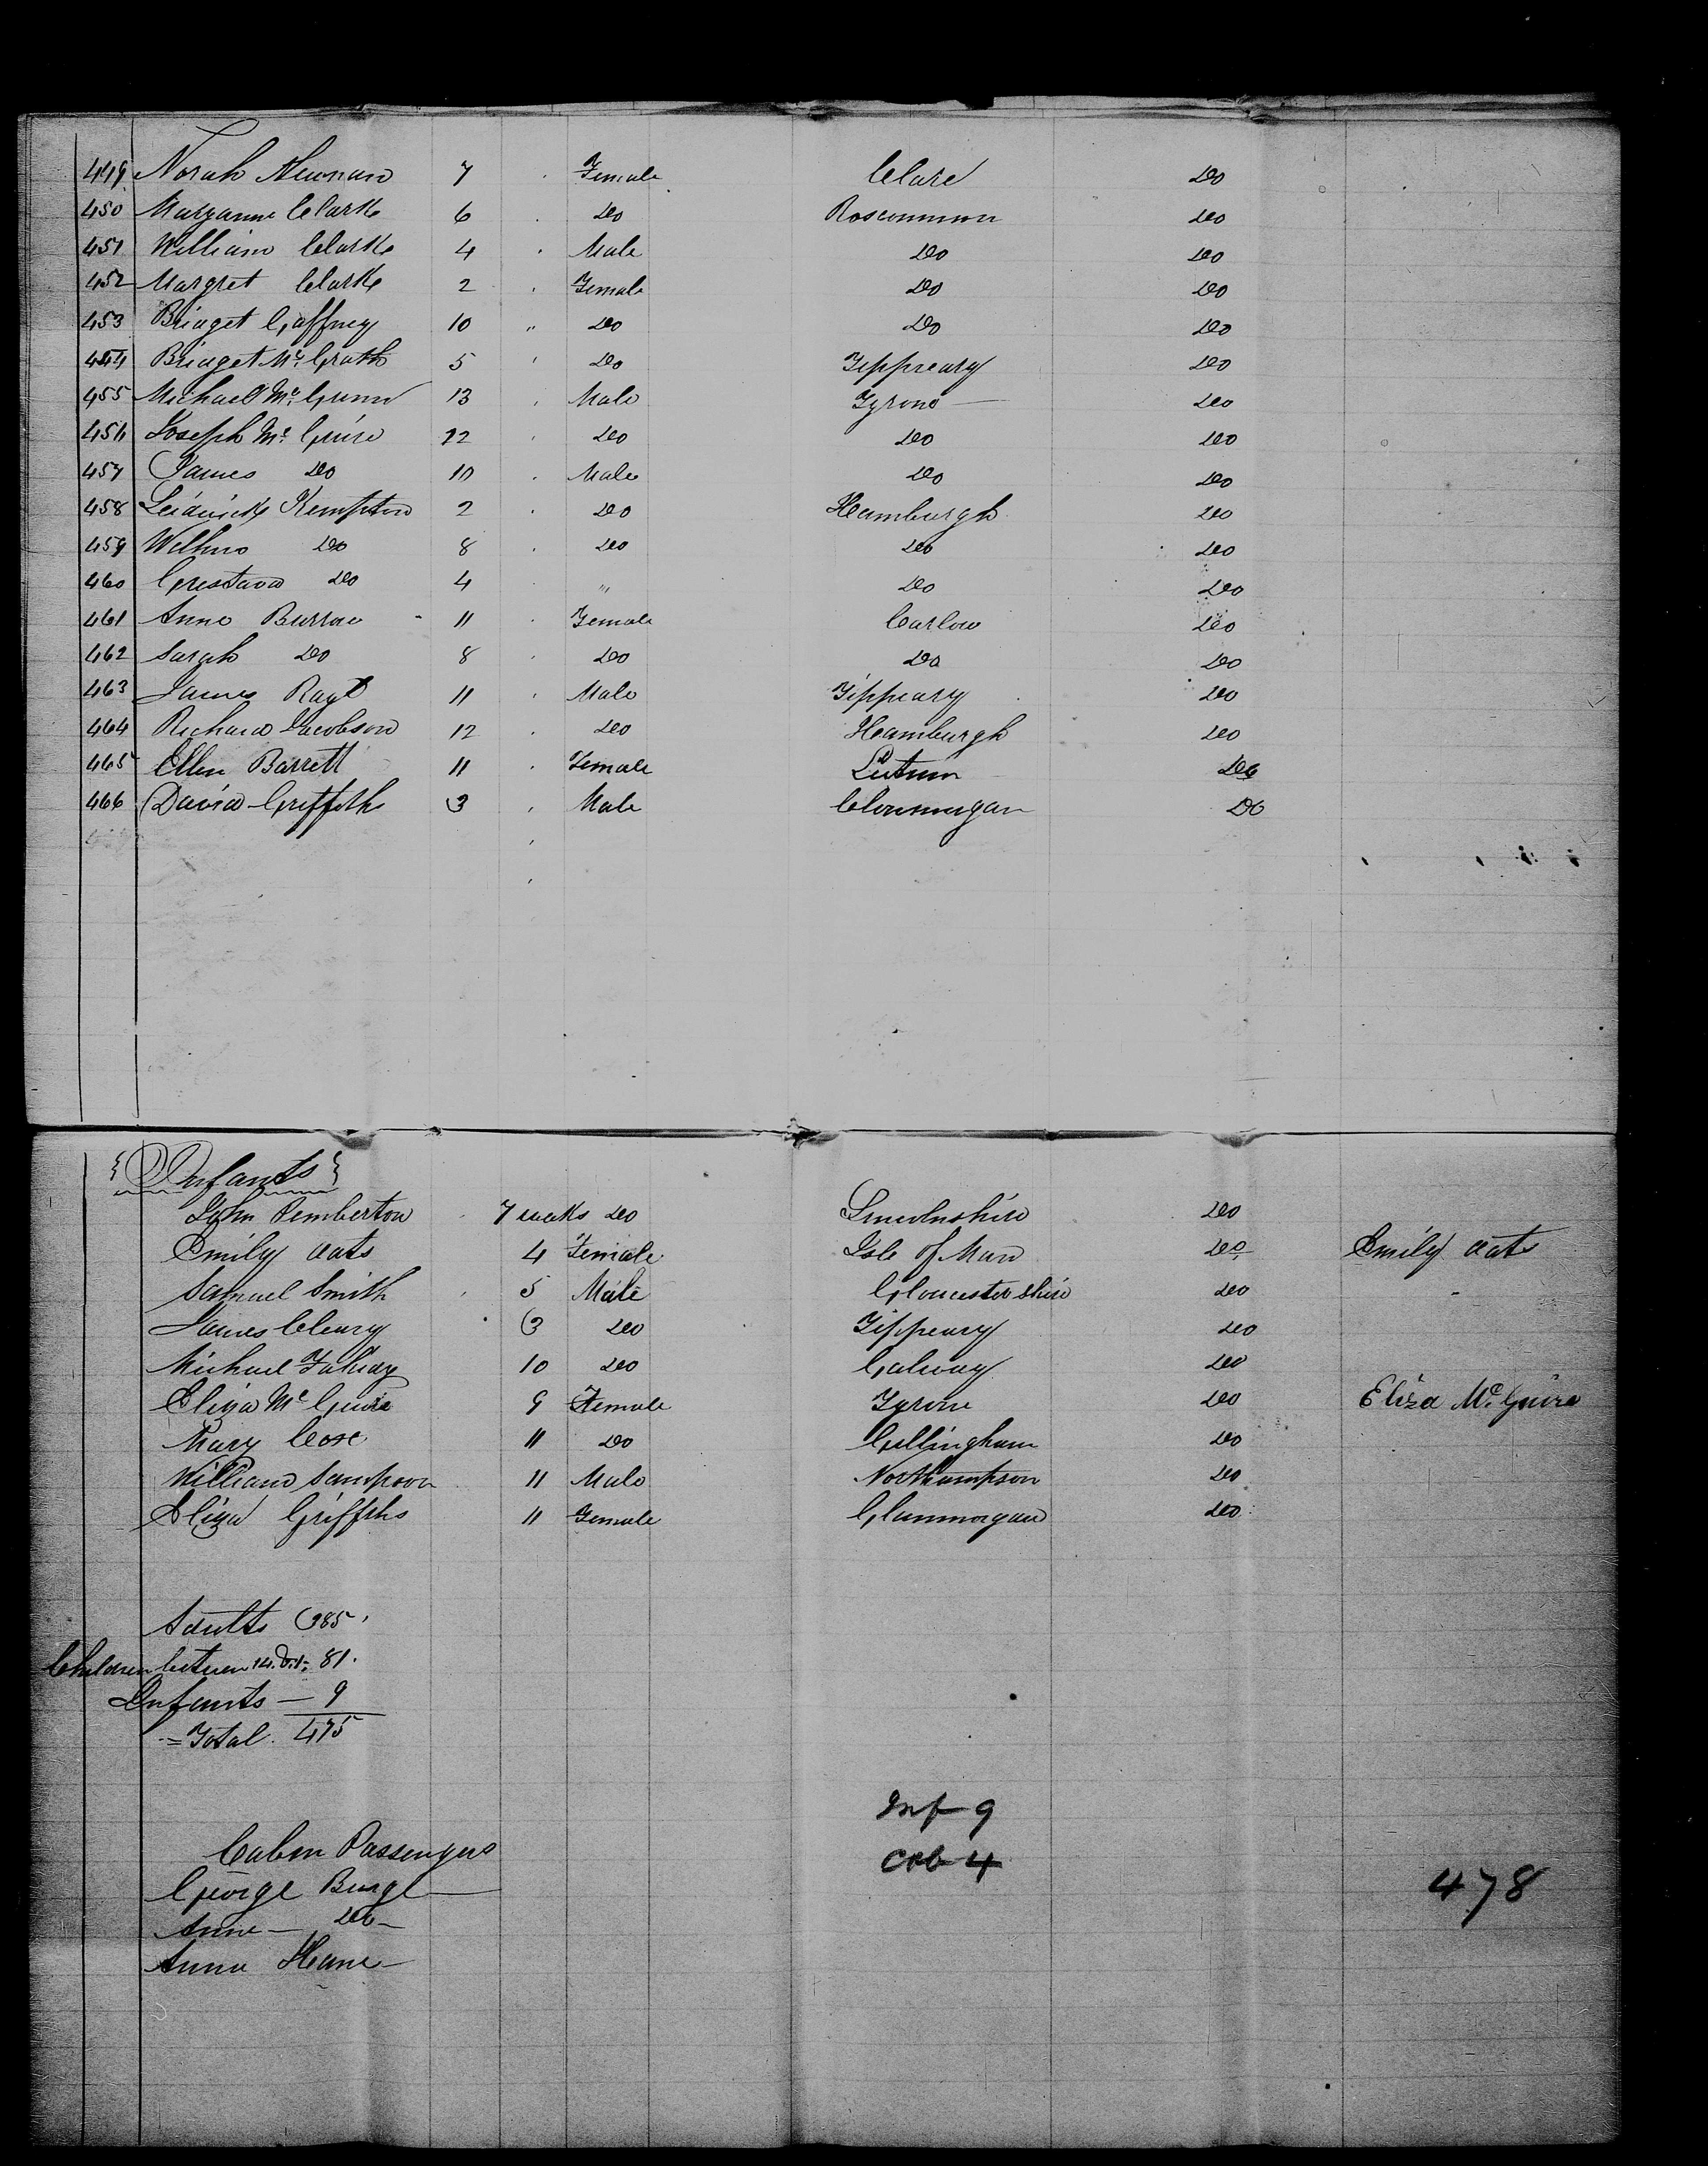 449 Norah Newnan 7 Female Clare Do
450 Maryanne Clarke 6 Do Roscommon Do
451 William Clarke 4 Male Do Do
452 Margret Clarke 2 Female Do Do
453 Bridget Gaffney 10 " Do Do Do
454 Bridget Mc Grath 5 Do Tippreary Do
455 Michael Mc 13 Male Tyrone Do
456 Joseph Mc Guire 12 Do Do Do
457 James Do 10 Male Do Do
458 Kempton 2 Do Hamburgh Do
459 Do 8 Do Do Do
460 Do 4 " Do Do
461 Anne Burrow 11 Female Carlow Do
462 Sarah Do 8 Do Do Do
463 James 11 Male Tippeary Do
464 Richard Jacobson 12 Do Hamburgh Do
465 Ellen Barrett 11 Female Do
466 David Griffiths 3 Male Do
{Infants}
John Pemberton 7 weeks Do Lincolnshire Do
Emily Oats 4 Female Isle of Man Do Emily Oats
Samuel Smith 5 Male Gloucestershire Do
James Cleary 3 Do Tippeary Do
Michael Fahay 10 Do Galway Do
Eliza Mc Guire 9 Female Tyrone Do Eliza Mc Guire
Mary Cose 11 Do Do
William Sampson 11 Male Northampson Do
Eliza Griffths 11 Female Glanmorgan Do
Adults 385
Children between 14 & 1, 81.
Infants — 9
= Total. 475
Inf 9
Cabin Passengers
Cab 4
George Burge
478
Anne — Do —
Anna Hane